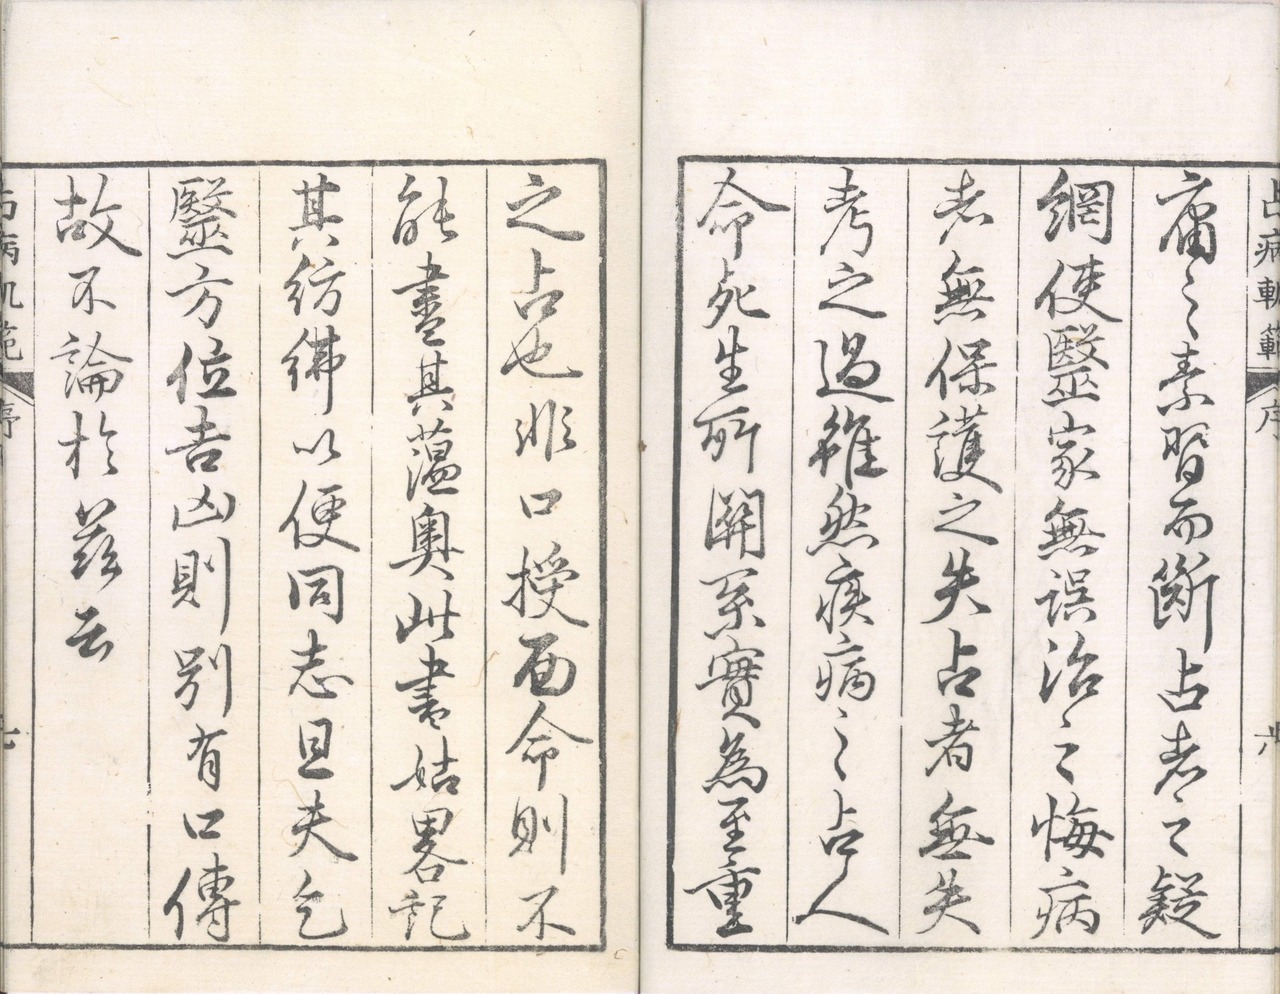 占病軌範 序 六
庸之素習而斷占者之疑
網使毉家無誤治之悔病
者無保護之失占者無失
考之過雖然疾病之占人
命死生所關系實為至重
之占也非口授面命則不
能盡其薀奧此書姑畧記
其彷彿以便同志且夫乞
毉方位吉凶則別有口傳
故不論於茲云
占病軌範 序 七